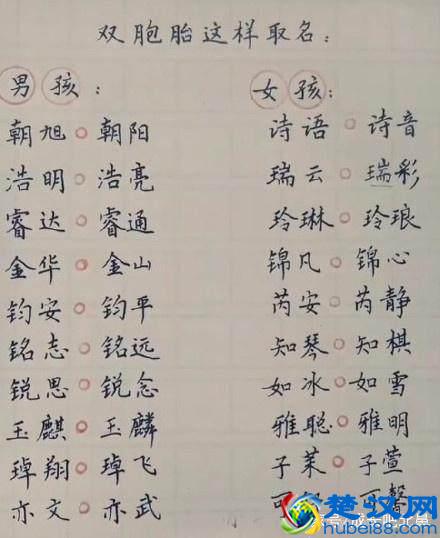 双胞胎这样取名：
男孩：
朝旭○朝阳
浩明○浩亮
睿达○睿通
金华○金山
钧安○钧平
铭志○铭远
锐思○锐念
玉麒○玉麟
琸翔○琸飞
亦文○亦武
女孩：
诗语○诗音
瑞云○瑞彩
玲琳○玲琅
锦凡○锦心
芮安○芮静
知琴○知棋
如冰○如雪
雅聪○雅明
子茉○子萱
可 可馨
楚汉网
hubei88.com